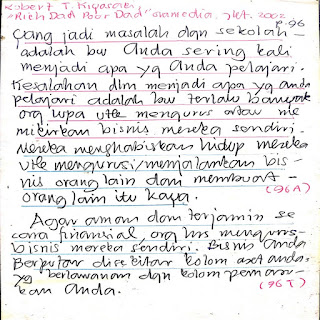 Robert T. Kiyosaki,
"Rich Dad Poor Dad" Gramedia, Jkt. 2002
p. 96
Yang jadi masalah dgn sekolah
adalah bw Anda sering kali
menjadi apa yg Anda pelajari.
Kesalahan dlm menjadi apa yg anda
pelajari adalah bw terlalu banyak
org lupa utk mengurus atau me
mikirkan bisnis mereka sendiri.
Mereka menghabiskan hidup mereka
utk mengurusi/menjalankan bis-
nis orang lain dan membuat
orang lain itu kaya.
(96A)
Agar aman dan terjamin se
cara financial, org hrs mengurus
bisnis mereka sendiri. Bisnis Anda
Berputar di sekitar kolom aset anda,
yg berlawanan dgn kolom pema-
kan Anda.
(96T)